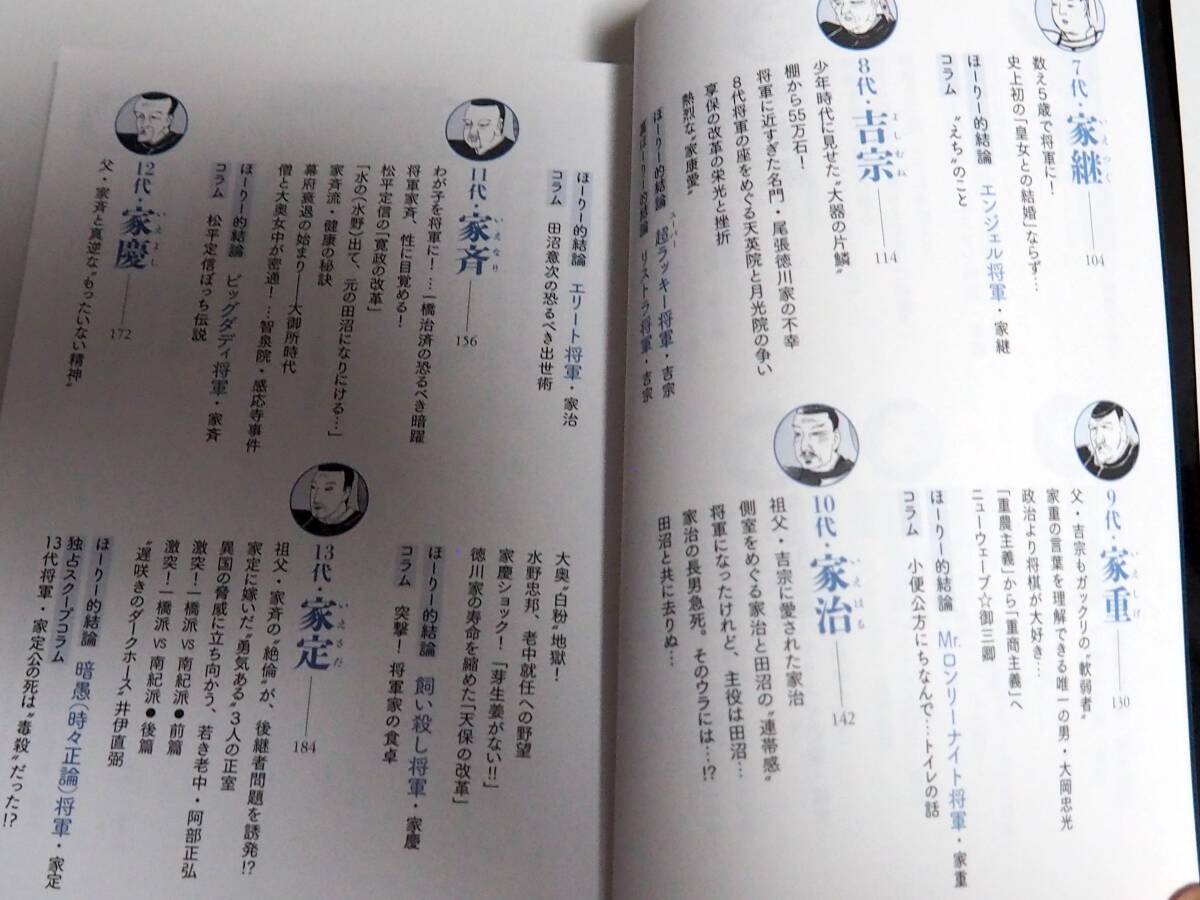 7代・家継
いえつぐ
104
数え5歳で将軍に!
史上初の「皇女との結婚」ならず…
ほーりー的結論 エンジェル将軍・家継
コラム “えち”のこと
8代・吉宗
よしむね
114
少年時代に見せた“大器の片鱗”
棚から55万石!
将軍に近すぎた名門・尾張徳川家の不幸
8代将軍の座をめぐる天英院と月光院の争い
享保の改革の栄光と挫折
熱烈な“家康愛”
ほーりー的結論 超ラッキー将軍・吉宗
スーパー
裏ほーりー的結論 リストラ将軍・吉宗
9代・家重
いえしげ
130
父・吉宗もガックリの“軟弱者”
家重の言葉を理解できる唯一の男・大岡忠光
政治より将棋が大好き…
「重農主義」から「重商主義」へ
ニューウェーブ☆御三卿
ほーりー的結論 Mr.ロンリーナイト将軍・家重
コラム 小便公方にちなんで…トイレの話
10代・家治
いえはる
142
祖父・吉宗に愛された家治
側室をめぐる家治と田沼の“連帯感”
将軍になったけれど、主役は田沼…
家治の長男急死。そのウラには…!?
田沼と共に去りぬ…
ほーりー的結論 エリート将軍・家治
コラム 田沼意次の恐るべき出世術
11代・家斉
いえなり
156
わが子を将軍に!…一橋治済の恐るべき暗躍
将軍家斉、性に目覚める!
松平定信の「寛政の改革」
「水の(水野)出て、元の田沼になりにける…」
家斉流・健康の秘訣
幕府衰退の始まり――大御所時代
僧と大奥女中が密通!…智泉院・感応寺事件
ほーりー的結論 ビッグダディ将軍・家斉
コラム 松平定信ぼっち伝説
12代・家慶
いえよし
172
父・家斉と真逆な“もったいない精神”
大奥“白粉”地獄!
水野忠邦、老中就任への野望
家慶ショック!「芽生姜がない!!」
徳川家の寿命を縮めた「天保の改革」
ほーりー的結論 飼い殺し将軍・家慶
コラム 突撃!将軍家の食卓
13代・家定
いえさだ
184
祖父・家斉の“絶倫”が、後継者問題を誘発!?
家定に嫁いだ“勇気ある”3人の正室
異国の脅威に立ち向かう、若き老中・阿部正弘
激突!一橋派 vs 南紀派●前篇
激突!一橋派 vs 南紀派●後篇
“遅咲きのダークホース”井伊直弼
ほーりー的結論 暗愚(時々正論)将軍・家定
独占スクープコラム
13代将軍・家定公の死は“毒殺”だった!?